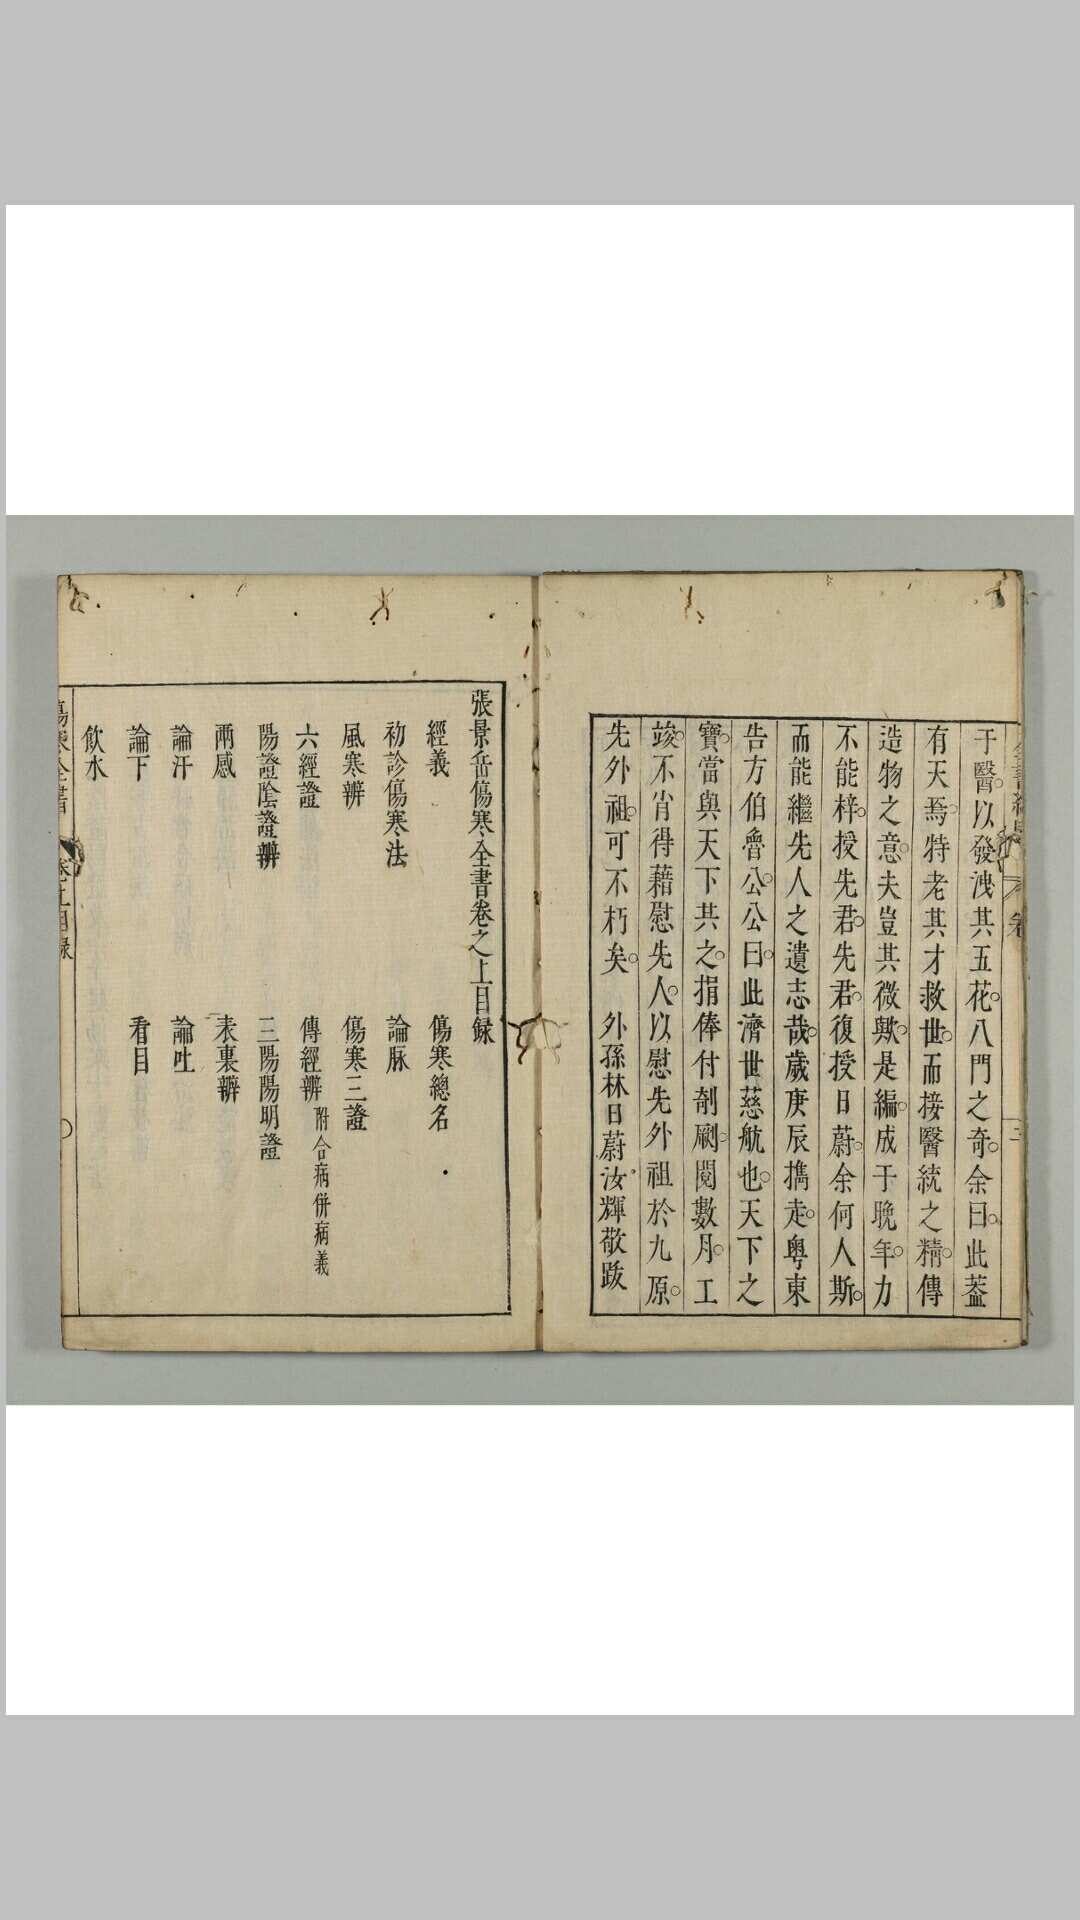 于醫以發洩其五花八門之奇余曰此葢
有天焉特老其才救世而接醫統之精傳
造物之意夫豈其微歟是編成于晚年力
不能梓授先君先君復授日蔚余何人斯
而能繼先人之遺志哉歲庚辰攜走粵東
告方伯魯公公曰此濟世慈航也天下之
寶當與天下共之捐俸付剞劂閱數月工
竣不肖得藉慰先人以慰先外祖於九原
先外祖可不朽矣 外孫林日蔚汝輝敬跋
張景岳傷寒全書卷之上目録
經義 傷寒總名
初診傷寒法 論脉
風寒辨 傷寒三證
六經證 傳經辨 附合病併病義
陽證陰證辨 三陽陽明證
兩感 表裏辨
論汗 論吐
論下 看目
飲水
傷寒全書 目録